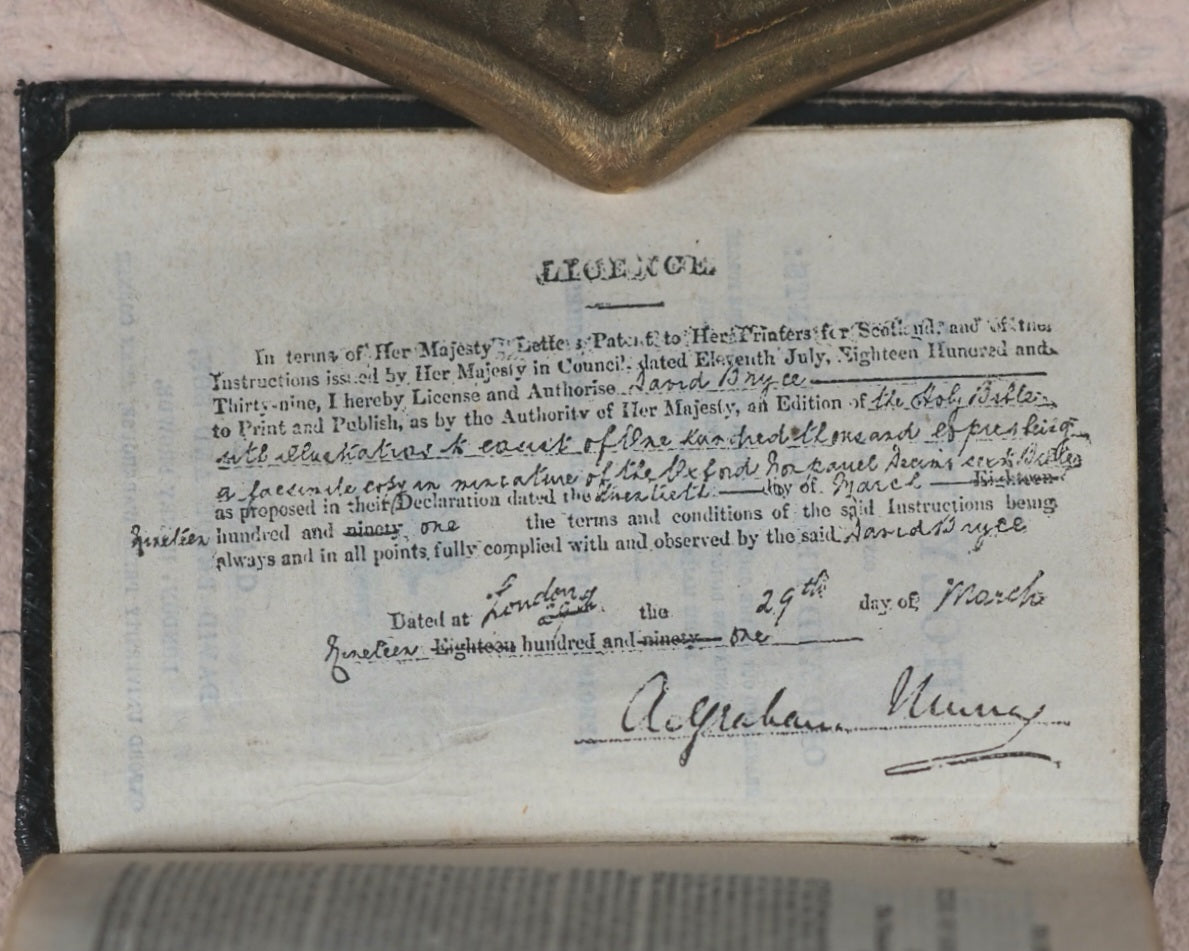 LICENCE
In terms of Her Majesty's Letters Patent to Her Printers for Scotland, and of the
Instructions issued by Her Majesty in Council, dated Eleventh July, Eighteen Hundred and
Thirty-nine, I hereby License and Authorise David Bryce
to Print and Publish, as by the Authority of Her Majesty, an Edition of the Holy Bible
with illustrations to consist of One hundred thousand copies being
a facsimile copy in miniature of the Oxford Nonpareil Bible
as proposed in their Declaration dated the twentieth day of March Eighteen
Nineteen hundred and ninety one the terms and conditions of the said Instructions being
always and in all points fully complied with and observed by the said David Bryce
Dated at London the 29th day of March
Nineteen Eighteen hundred and ninety one
A. Graham Murray